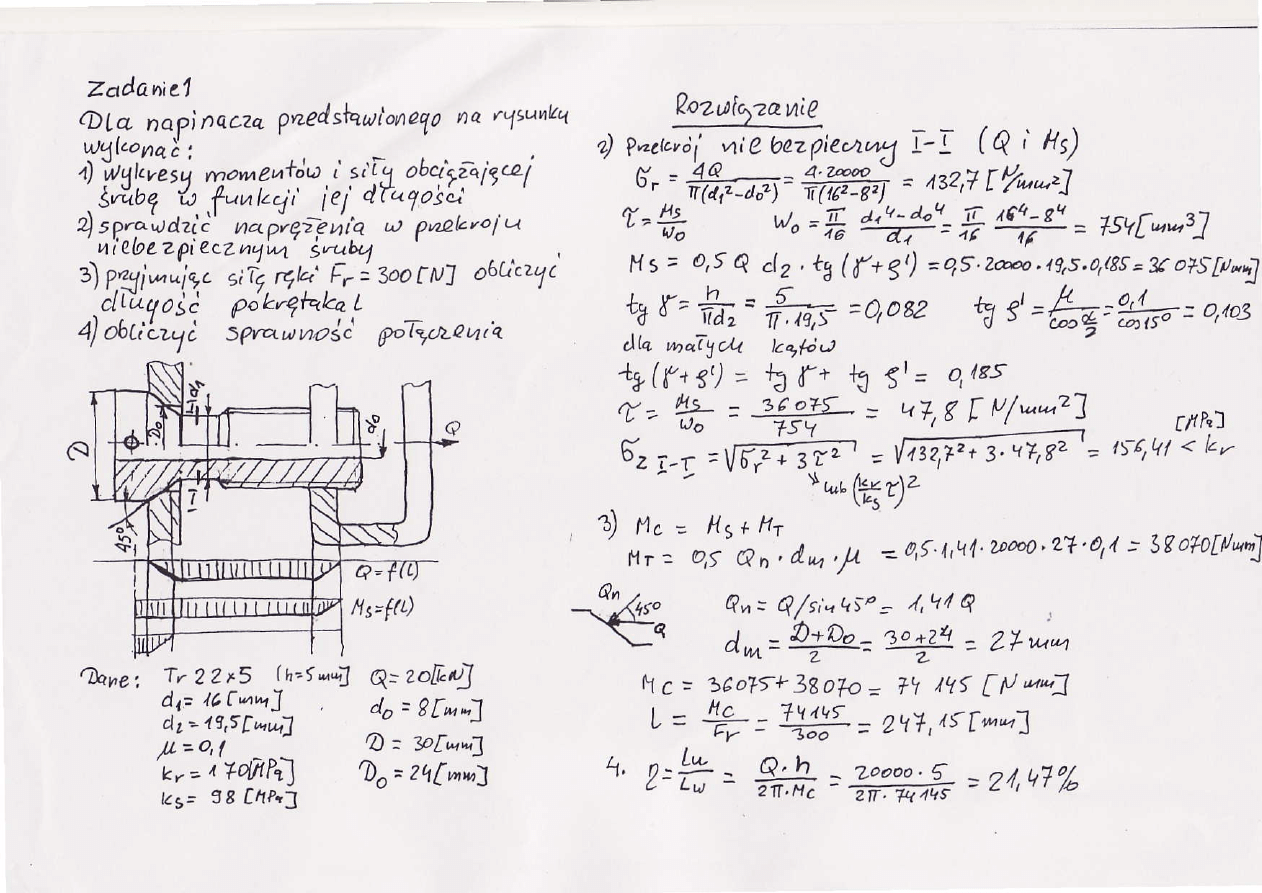 Zadanie1
Dla napinacza przedstawionego na rysunku
wykonać:
1) wykresy momentów i siły obciążającej
śrubę w funkcji jej długości
2) sprawdzić naprężenia w przekroju
niebezpiecznym śruby
3) przyjmując siłę ręki Fr = 300 [N] obliczyć
długość pokrętaka L
4) obliczyć sprawność połączenia
D
D₀
I
d1
d₀
Q
I
45°
Q = f(L)
Ms = f(L)
Dane: Tr 22×5 (h=5mm) Q = 20[kN]
d₁ = 16 [mm] d₀ = 8[mm]
d₂ = 19,5[mm] D = 30[mm]
μ = 0,1 D₀ = 24[mm]
kr = 170[MPa]
ks = 98 [MPa]
Rozwiązanie
2) Przekrój niebezpieczny I-I (Q i Ms)
σr = 4Q / π(d₁²-d₀²) = 4·20000 / π(16²-8²) = 132,7 [N/mm²]
τ = Ms/Wo Wo = π/16 (d₁⁴-d₀⁴)/d₁ = π/16 (16⁴-8⁴)/16 = 754[mm³]
Ms = 0,5 Q d₂ · tg (γ+ρ') = 0,5·20000·19,5·0,185 = 36 075 [Nmm]
tg γ = h/πd₂ = 5/π·19,5 = 0,082 tg ρ' = μ/cos α/2 = 0,1/cos15° = 0,103
dla małych kątów
tg (γ+ρ') = tg γ + tg ρ' = 0,185
τ = Ms/Wo = 36075/754 = 47,8 [N/mm²]
[MPa]
σz I-I = √σr²+3τ² = √132,7²+3·47,8² = 156,41 < kr
lub (kr/ks τ)²
3) Mc = Ms + MT
MT = 0,5 Qn · dm · μ = 0,5·1,41·20000·27·0,1 = 38070[Nmm]
Qn
45°
Q
Qn = Q/sin45° = 1,41Q
dm = D+Do/2 = 30+24/2 = 27mm
Mc = 36075+38070 = 74 145 [Nmm]
L = Mc/Fr = 74145/300 = 247,15 [mm]
4. η = Lu/Lw = Q·h/2π·Mc = 20000·5/2π·74145 = 21,47%